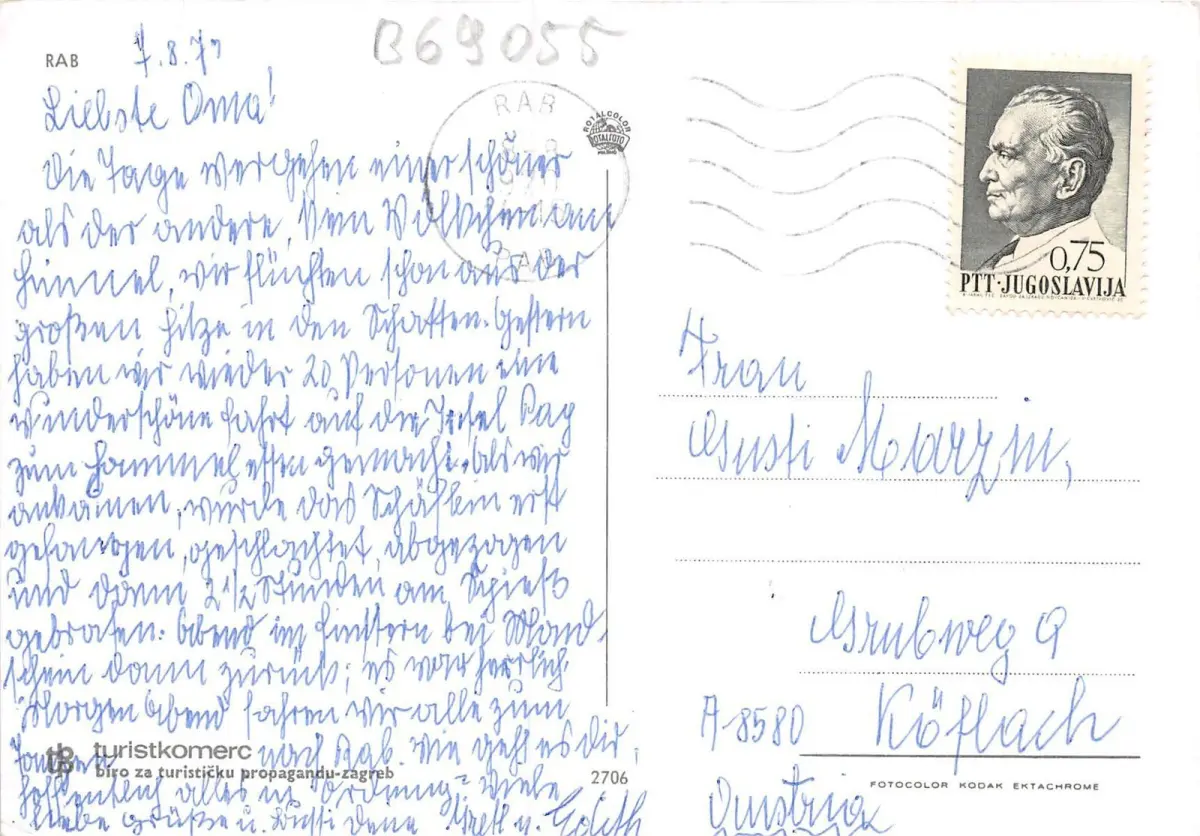 B69055
RAB
7.8.71
Liebste Oma!
Die Tage vergehen einer schöner
als der andere. Kein Wölkchen am
Himmel, wir flüchten schon aus der
großen Hitze in den Schatten. Gestern
haben wir wieder 20 Personen eine
wunderschöne Fahrt auf die Insel Pag
zum Hammelessen gemacht. Als wir
ankamen, wurde das Schäflein erst
gefangen, geschlachtet, abgezogen
und dann 2 1/2 Stunden am Spieß
gebraten. Abend im Finstern bei Mond-
schein dann zurück; es war herrlich.
Morgen Abend fahren wir alle zum
Tanzen nach Rab. Wie geht es dir,
hoffentlich alles in Ordnung? Viele
liebe Grüße u. Bussi Deine Gretl u. Edith
RAB
RAB
ROTALCOLOR
ROTALFOTO
0,75
PTT·JUGOSLAVIJA
Frau
Gusti Marzin,
Grubweg 9
A-8580 Köflach
Austria
turistkomerc
biro za turističku propagandu-zagreb
2706
FOTOCOLOR KODAK EKTACHROME